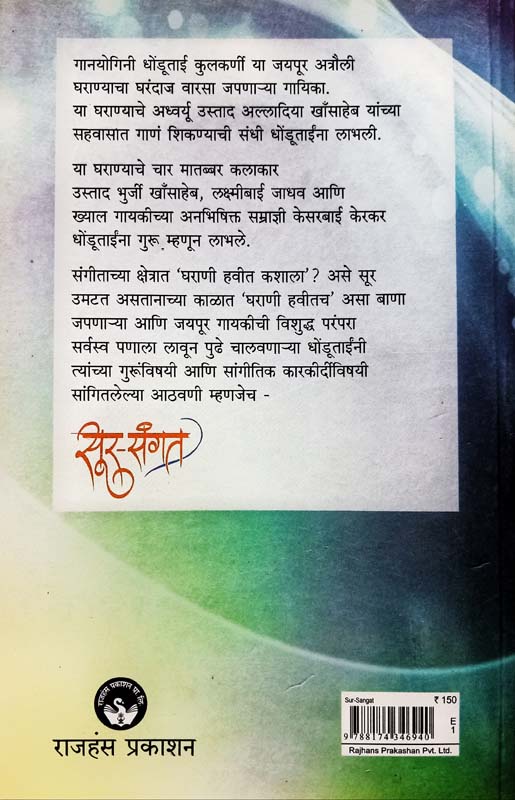 गानयोगिनी धोंडूताई कुलकर्णी या जयपूर अत्रौली
घराण्याचा घरंदाज वारसा जपणाऱ्या गायिका.
या घराण्याचे अध्वर्यू उस्ताद अल्लादिया खाँसाहेब यांच्या
सहवासात गाणं शिकण्याची संधी धोंडूताईंना लाभली.
या घराण्याचे चार मातब्बर कलाकार
उस्ताद भुर्जी खाँसाहेब, लक्ष्मीबाई जाधव आणि
ख्याल गायकीच्या अनभिषिक्त सम्राज्ञी केसरबाई केरकर
धोंडूताईंना गुरू म्हणून लाभले.
संगीताच्या क्षेत्रात ‘घराणी हवीत कशाला’? असे सूर
उमटत असतानाच्या काळात ‘घराणी हवीतच’ असा बाणा
जपणाऱ्या आणि जयपूर गायकीची विशुद्ध परंपरा
सर्वस्व पणाला लावून पुढे चालवणाऱ्या धोंडूताईंनी
त्यांच्या गुरूंविषयी आणि सांगीतिक कारकीर्दीविषयी
सांगितलेल्या आठवणी म्हणजेच -
सूर-संगत
राजहंस प्रकाशन प्रा. लि.
राजहंस प्रकाशन
Sur-Sangat ₹ 150
E
1
9 788174 346940
Rajhans Prakashan Pvt. Ltd.